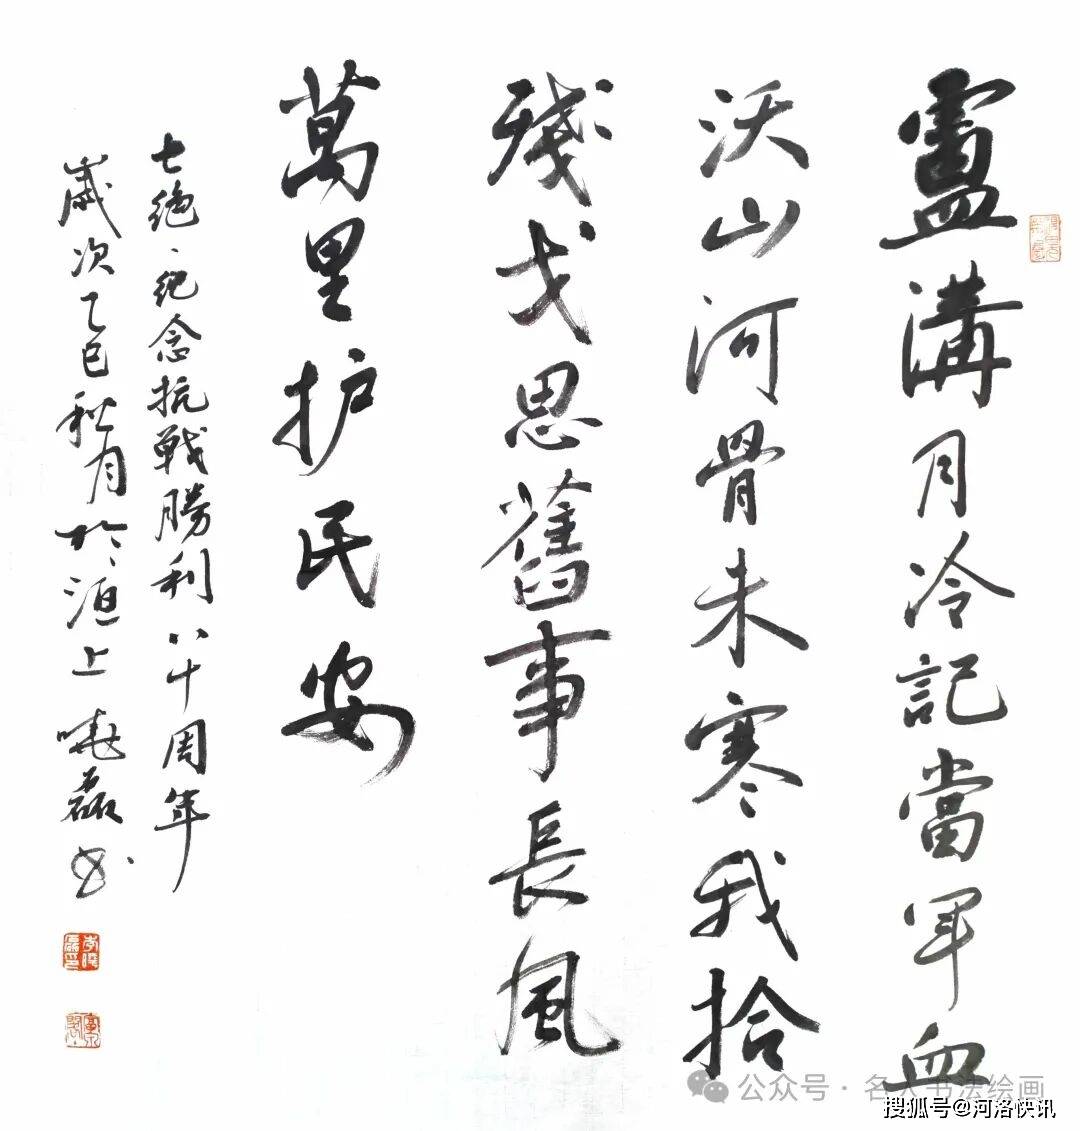 盧溝月冷記當年血
沃山河骨未寒我拾
殘戈思舊事長風
萬里护民安
七绝、纪念抗戰勝利八十周年
歲次乙巳秋月於洹上曉磊书
公众号·名人书法绘画
搜狐号@河洛快讯